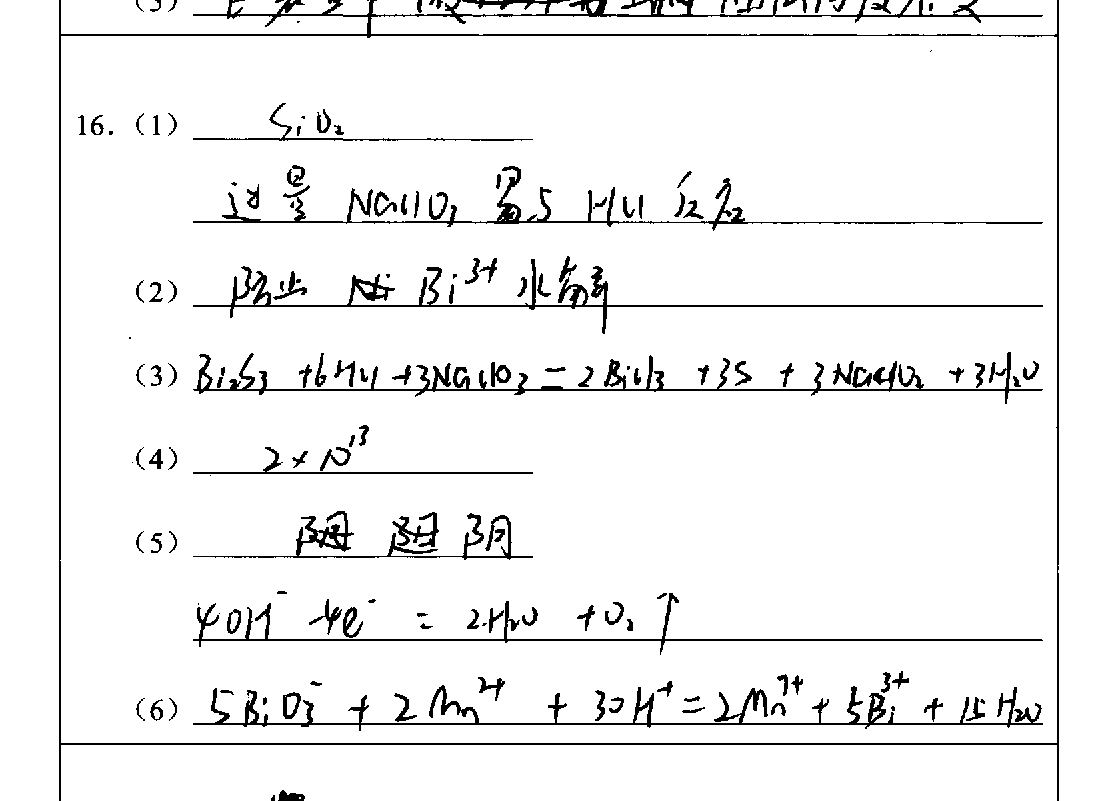 16.（1） SiO₂
过量 NaClO₃ 易与 HCl 反应
（2） 防止 Bi³⁺ 水解
（3） Bi₂S₃ + 6HCl + 3NaClO₃ = 2BiCl₃ + 3S + 3NaClO₂ + 3H₂O
（4） 2×10¹³
（5） 阴
4OH⁻ - 4e⁻ = 2H₂O + O₂↑
（6） 5BiO₃⁻ + 2Mn²⁺ + 30H⁺ = 2Mn⁷⁺ + 5Bi³⁺ + 15H₂O